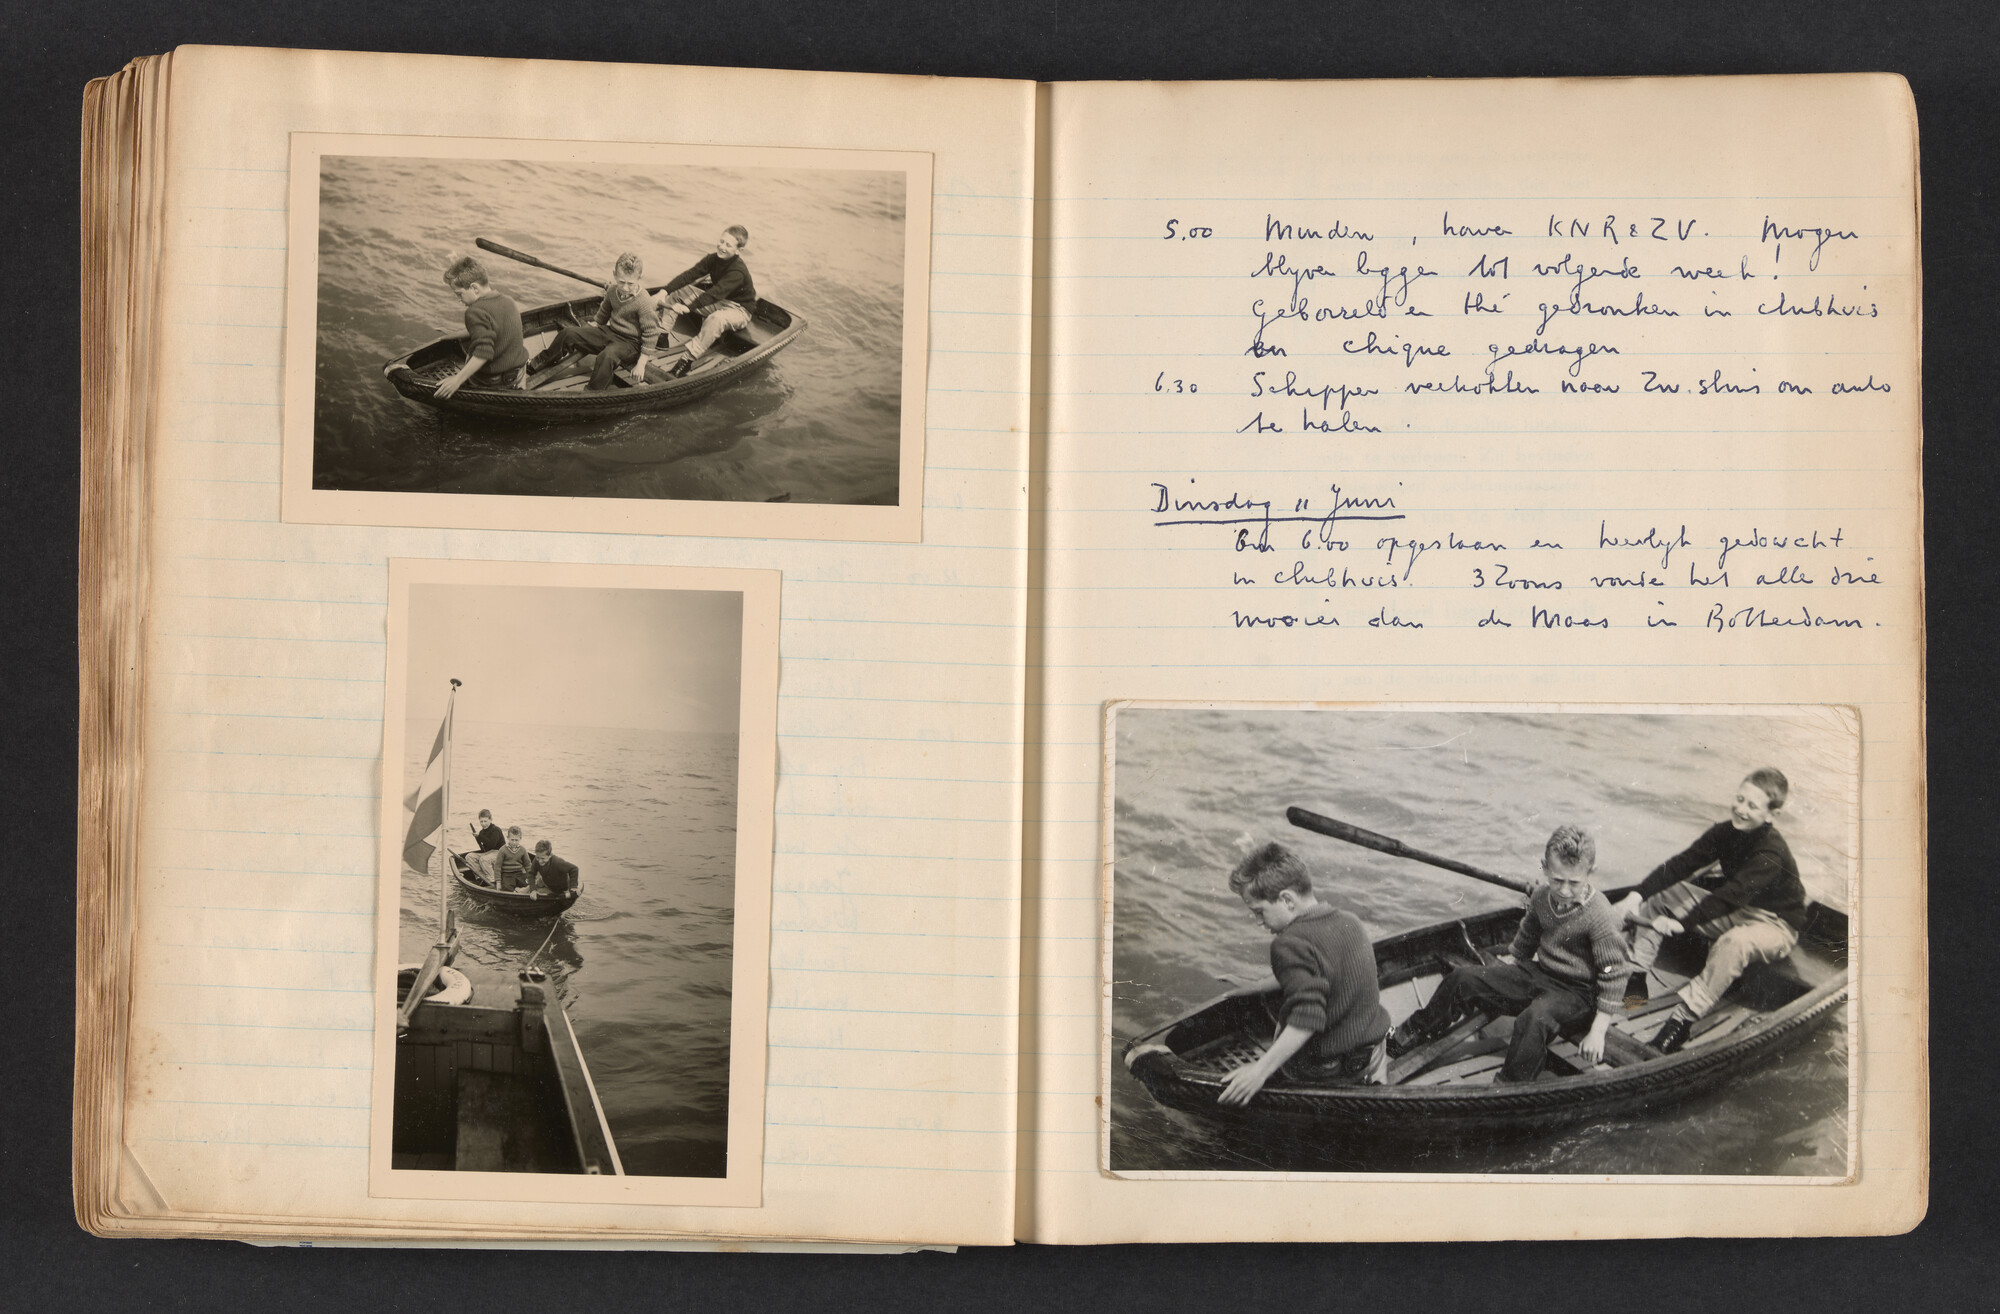 5.00 Muiden, haven KNR&ZV. Mogen
blyven liggen tot volgende week!
Geborreld en thé gedronken in clubhuis
en chique gedragen
6.30 Schipper vertrokken naar Zw. sluis om auto
te halen.
Dinsdag 11 Juni
Om 6.00 opgestaan en heerlyk gedoucht
in clubhuis. 3 Zoons vonde het alle drie
mooier dan de Maas in Rotterdam.